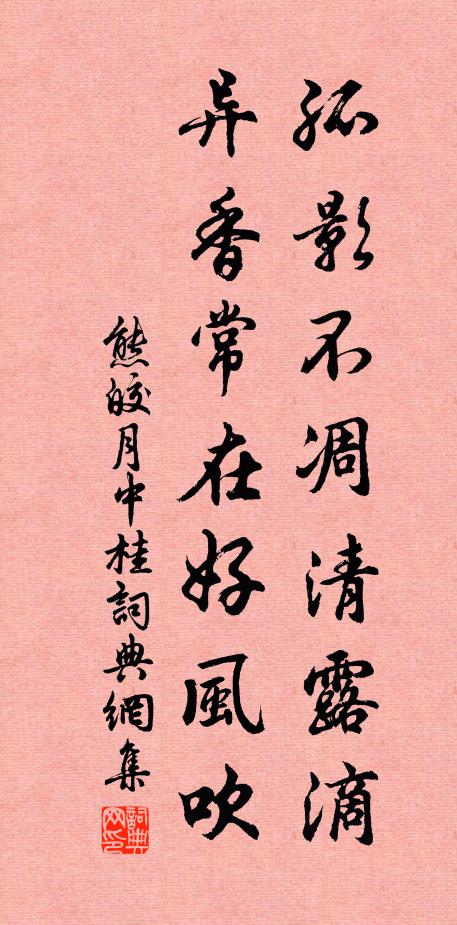 孤影不凋清露滴
异香常在好風吹
熊皎月中桂詞典網集
詞典网印